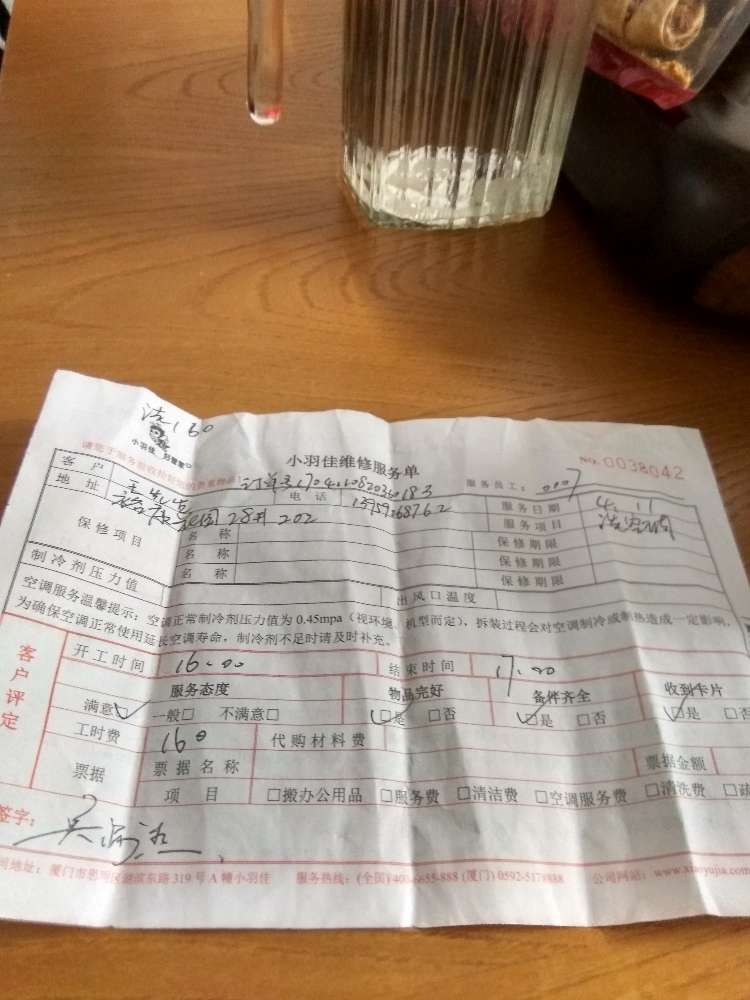 洗160
小羽佳
小羽佳维修服务单
NO. 0038042
客户
服务员工:
地址
28# 202
电话
服务日期 4. 11
服务项目
保修项目
名称
保修期限
名称
保修期限
名称
保修期限
制冷剂压力值
出风口温度
空调服务温馨提示:空调正常制冷剂压力值为 0.45mpa(视环境、机型而定),拆装过程会对空调制冷或制热造成一定影响,
为确保空调正常使用延长空调寿命,制冷剂不足时请及时补充。
客户评定
开工时间 16:00 结束时间 17:00
服务态度 物品完好 备件齐全 收到卡片
满意□ 一般□ 不满意□ □是 □否 □是 □否 □是 □否
工时费 160 代购材料费
票据 票据名称 票据金额
项目 □搬办公用品 □服务费 □清洁费 □空调服务费 □清洗费
签字:
地址:厦门市思明区湖滨东路 319 号 A 幢小羽佳 服务热线:(全国) (厦门) 公司网站:www.xiaoyujia.com